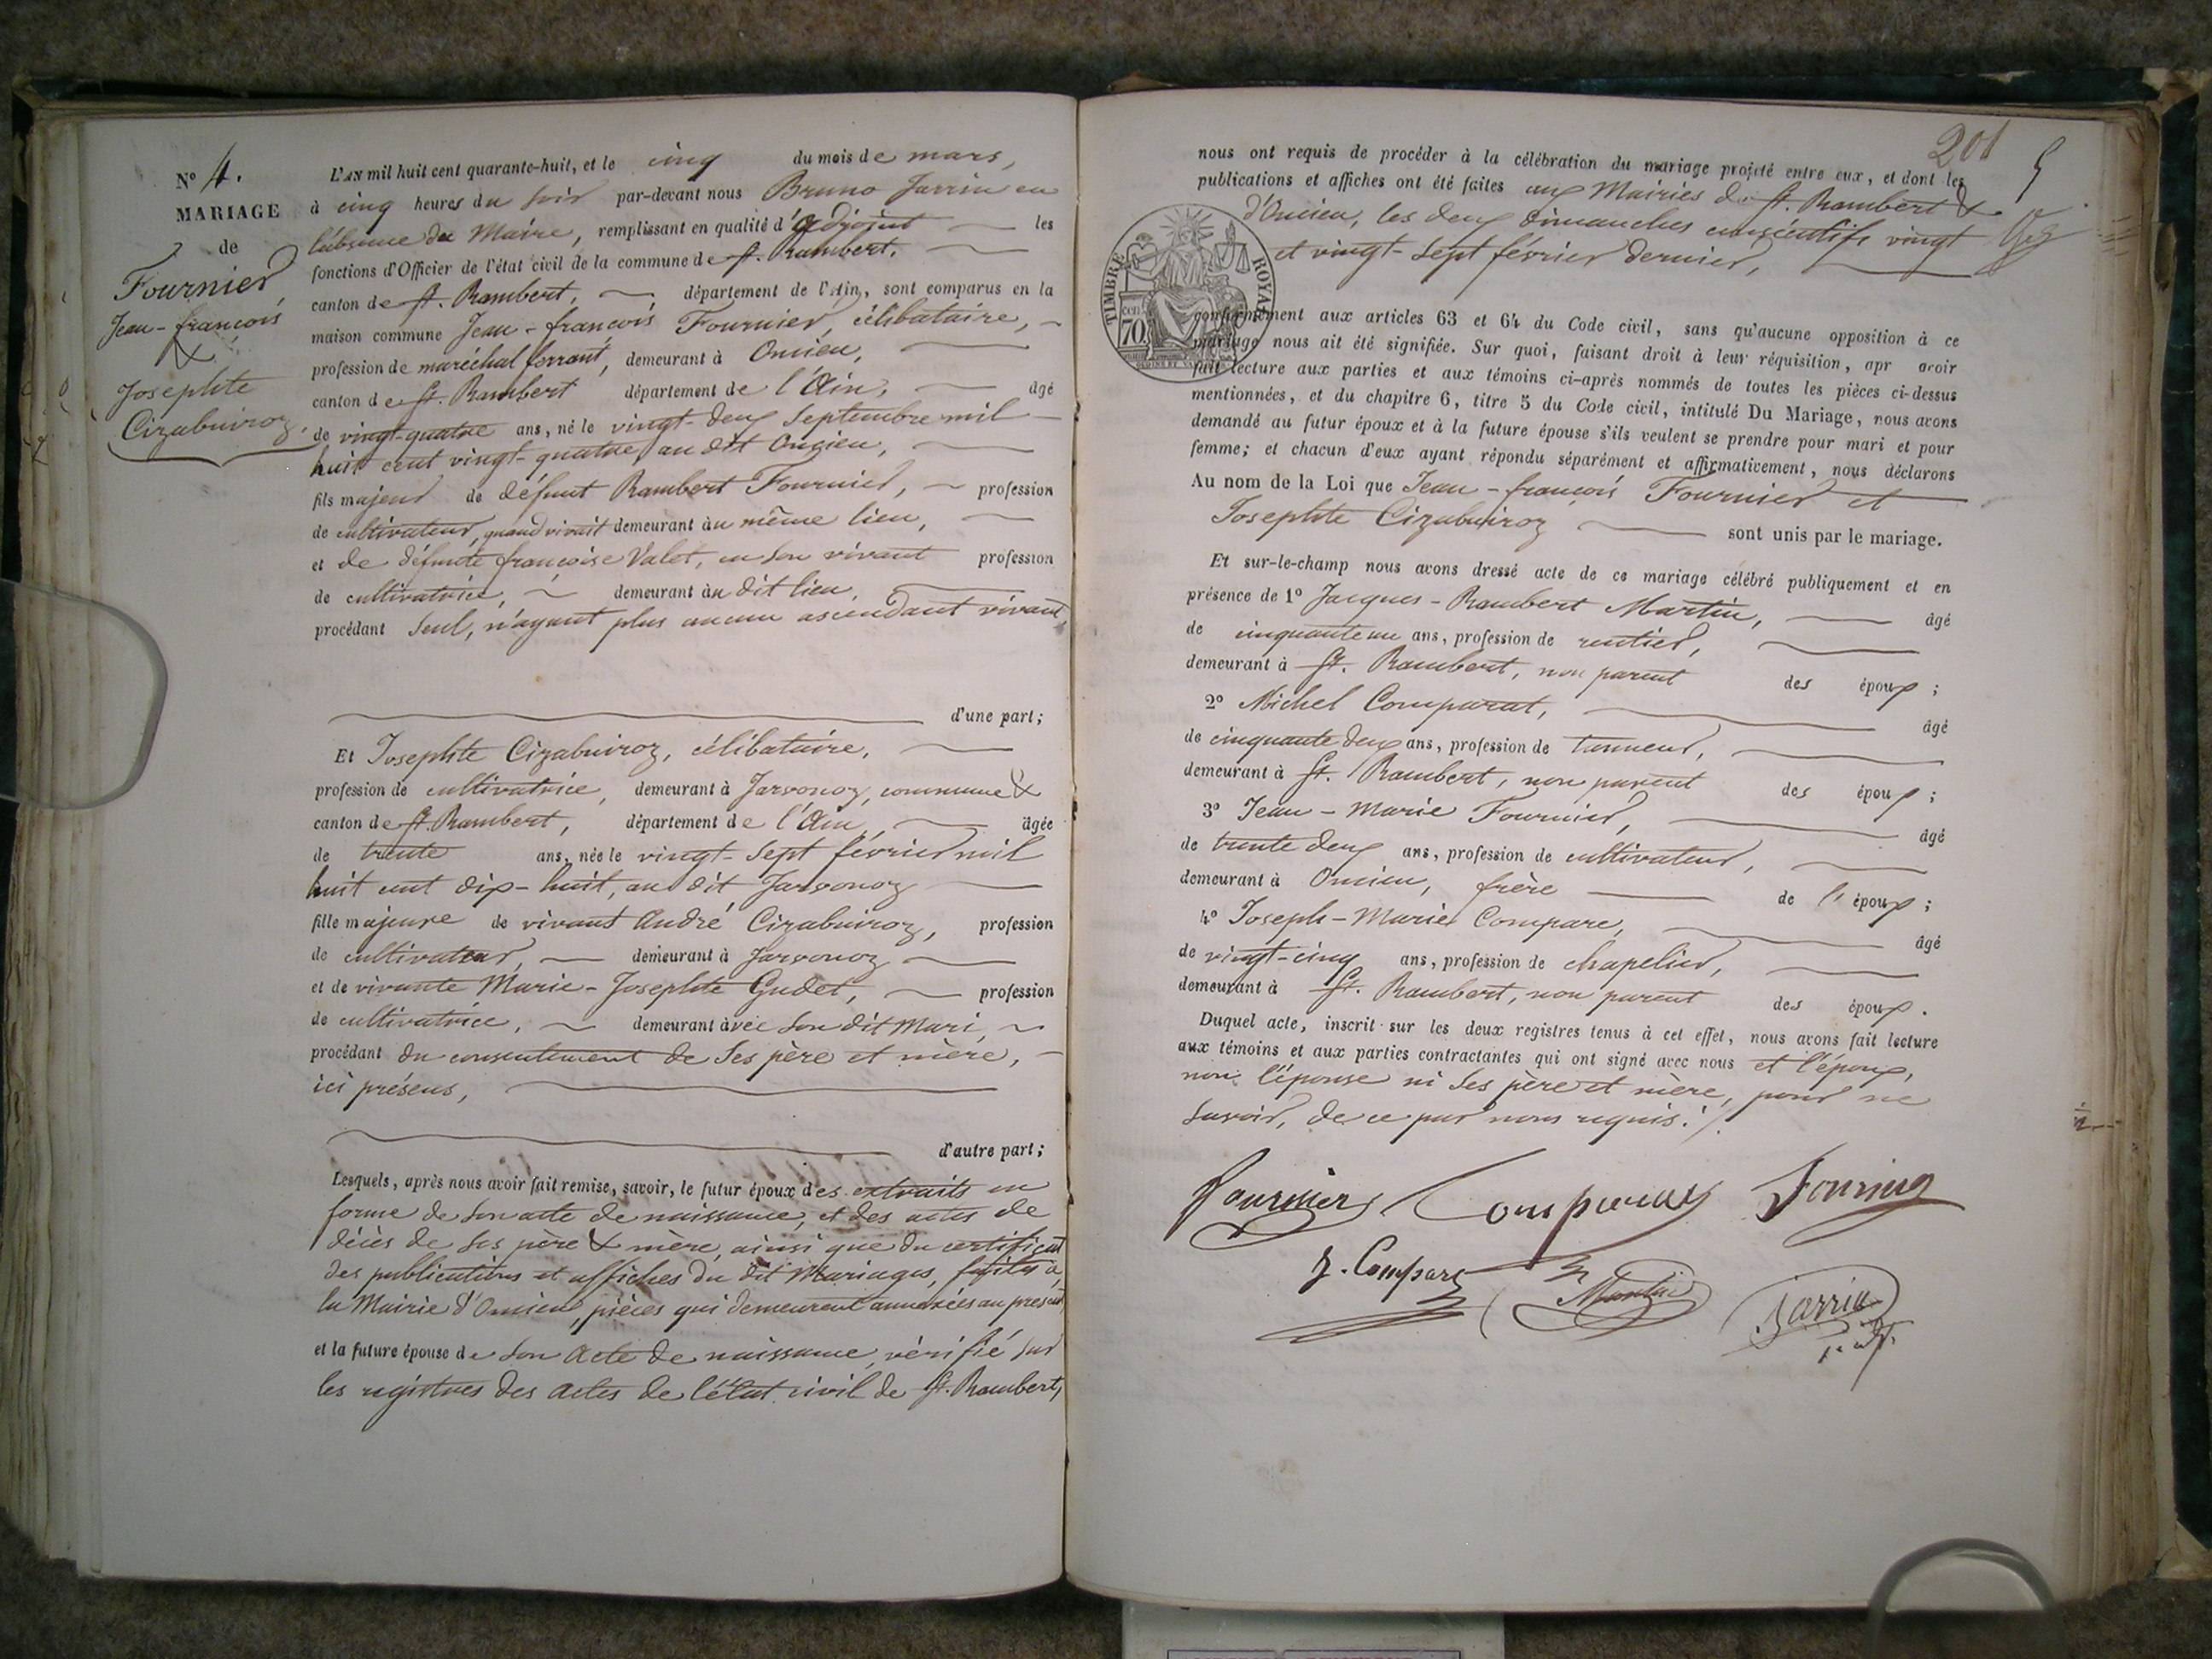 N° 4.
MARIAGE
de
Fournier
Jean-françois
&
Josephte
Cizabuiroz.
L'AN mil huit cent quarante-huit, et le cinq du mois de mars,
à cinq heures du soir par-devant nous Bruno Jarrin en
l'absence du Maire, remplissant en qualité d'adjoint les
fonctions d'Officier de l'état civil de la commune de St. Rambert,
canton de St. Rambert, département de l'Ain, sont comparus en la
maison commune Jean-françois Fournier, célibataire,
profession de maréchal ferrant, demeurant à Oncieu,
canton de St. Rambert département de l'Ain, âgé
de vingt-quatre ans, né le vingt-deux Septembre mil
huit cent vingt-quatre, au dit Oncieu,
fils majeur de défunt Rambert Fournier, profession
de cultivateur, quand vivait demeurant au même lieu,
et de défunte françoise Valet, en son vivant profession
de cultivatrice, demeurant au dit lieu,
procédant Seul, n'ayant plus aucun ascendant vivant,
d'une part;
Et Josephte Cizabuiroz, célibataire,
profession de cultivatrice, demeurant à Javornoz, commune &
canton de St. Rambert, département de l'Ain, âgée
de trente ans, née le vingt-Sept février mil
huit cent dix-huit, au dit Javornoz
fille majeure de vivant André Cizabuiroz, profession
de cultivateur, demeurant à Javornoz
et de vivante Marie-Josephte Gudet, profession
de cultivatrice, demeurant avec Son dit Mari,
procédant du consentement de Ses père et mère,
ici présens,
d'autre part;
Lesquels, après nous avoir fait remise, savoir, le futur époux des extraits en
forme de Son acte de naissance, et des actes de
décès de Ses père & mère, ainsi que du certificat
des publications et affiches du dit Mariages, faites à
la Mairie d'Oncieu, pièces qui demeurent annexées au présent
et la future épouse de Son acte de naissance, vérifié sur
les registres des actes de l'état civil de St. Rambert,
201
nous ont requis de procéder à la célébration du mariage projeté entre eux, et dont les
publications et affiches ont été faites aux Mairies de St. Rambert &
d'Oncieu, les deux Dimanches consécutifs vingt
et vingt-Sept février dernier,
TIMBRE ROYAL
cen.
70.
conformément aux articles 63 et 64 du Code civil, sans qu'aucune opposition à ce
mariage nous ait été signifiée. Sur quoi, faisant droit à leur réquisition, apr avoir
fait lecture aux parties et aux témoins ci-après nommés de toutes les pièces ci-dessus
mentionnées, et du chapitre 6, titre 5 du Code civil, intitulé Du Mariage, nous avons
demandé au futur époux et à la future épouse s'ils veulent se prendre pour mari et pour
femme; et chacun d'eux ayant répondu séparément et affirmativement, nous déclarons
Au nom de la Loi que Jean-françois Fournier et
Josephte Cizabuiroz sont unis par le mariage.
Et sur-le-champ nous avons dressé acte de ce mariage célébré publiquement et en
présence de 1° Jacques-Rambert Martin, âgé
de cinquante un ans, profession de rentier,
demeurant à St. Rambert, non parent des époux;
2° Michel Comparat, âgé
de cinquante deux ans, profession de tanneur,
demeurant à St. Rambert, non parent des époux;
3° Jean-Marie Fournier, âgé
de trente deux ans, profession de cultivateur,
demeurant à Oncieu, frère de l'époux;
4° Joseph-Marie Compare, âgé
de vingt-cinq ans, profession de chapelier,
demeurant à St. Rambert, non parent des époux.
Duquel acte, inscrit sur les deux registres tenus à cet effet, nous avons fait lecture
aux témoins et aux parties contractantes qui ont signé avec nous et l'époux,
non l'épouse ni Ses père et mère, pour ne
Savoir, de ce par nous requis.
fournier Comparat Fournier
J. Compare Martin Jarrin